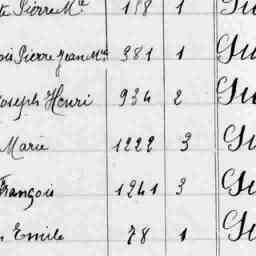 te Pierre Mie 158 1 Gu
ois Pierre Jean Mie 381 1 Gu
Joseph Henri 934 2 Gu
Marie 1222 3 Gu
François 1241 3 Gu
s Emile 78 1 Gu